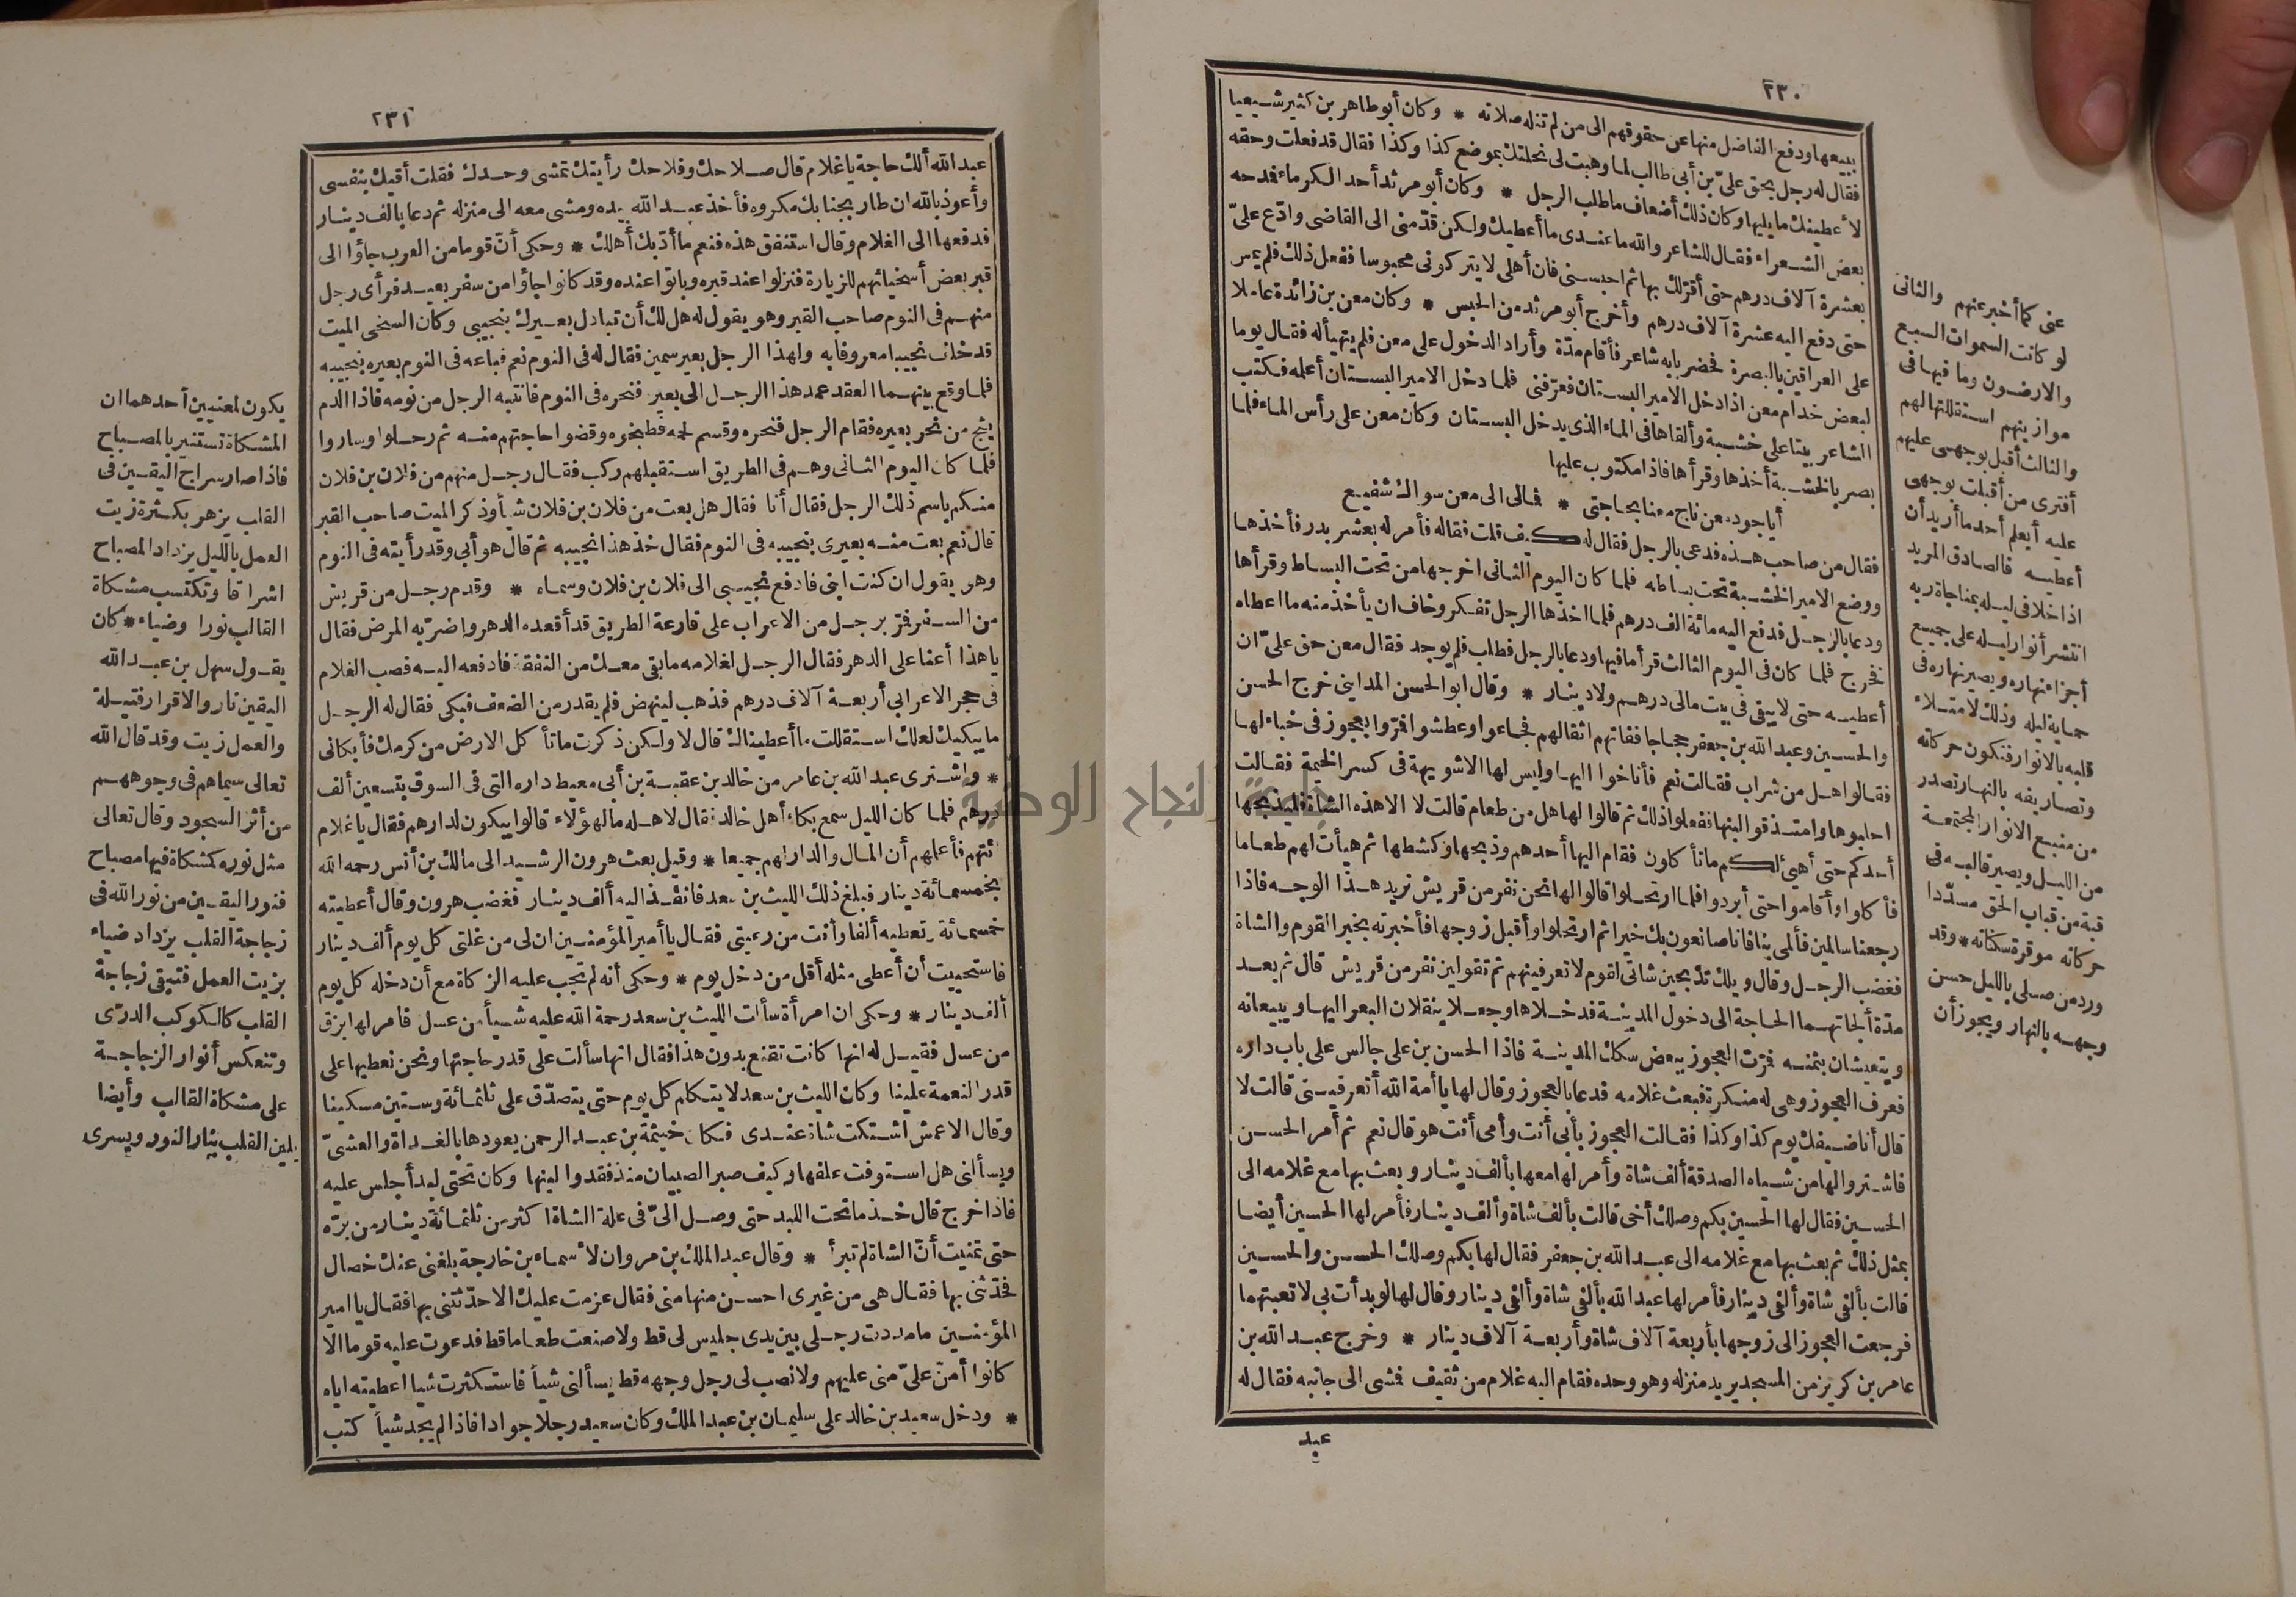 ٢٣٠
ببيعها ودفع الفاضل منها عن حقوقهم الى من لم تنله صلاته * وكان أبو طاهر بن كثير شيعيا
فقال له رجل بحق على بن أبى طالب لما وهبت لى نخلتك بموضع كذا وكذا فقال قد فعلت وحقه
لأعطينك ما يليها وكان ذلك أضعاف ما طلب الرجل * وكان أبو مرثد أحد الكرماء فمدحه
بعض الشعراء فقال للشاعر والله ما عندى ما أعطيك ولكن قدّمنى الى القاضى وادّع علىّ
بعشرة آلاف درهم حتى أقرّ لك بها ثم احبسنى فان أهلى لا يتركونى محبوسا ففعل ذلك فلم يمس
حتى دفع اليه عشرة آلاف درهم وأخرج أبو مرثد من الحبس * وكان معن بن زائدة عاملا
على العراقين بالبصرة فحضر بابه شاعر فأقام مدّة وأراد الدخول على معن فلم يتهيأ له فقال يوما
لبعض خدام معن اذا دخل الامير البستان فعرّفنى فلما دخل الامير البستان أعلمه فكتب
الشاعر بيتا على خشبة وألقاها فى الماء الذى يدخل البستان وكان معن على رأس الماء فلما
بصر بالخشبة أخذها وقرأها فاذا مكتوب عليها
أيا جود معن ناج معنا بحاجتى * فمالى الى معن سواك شفيع
فقال من صاحب هذه فدعى بالرجل فقال له كيف قلت فقاله فأمر له بعشر بدر فأخذها
ووضع الامير الخشبة تحت بساطه فلما كان اليوم الثانى اخرجها من تحت البساط وقرأها
ودعا بالرجل فدفع اليه مائة الف درهم فلما اخذها الرجل تفكر وخاف ان يأخذ منه ما اعطاه
فخرج فلما كان فى اليوم الثالث قرأ ما فيها ودعا بالرجل فطلب فلم يوجد فقال معن حق علىّ ان
أعطيه حتى لا يبقى فى بيت مالى درهم ولا دينار * وقال ابو الحسن المداينى خرج الحسن
والحسين وعبد الله بن جعفر حجاجا ففاتهم اثقالهم فجاءوا وعطشوا فمرّوا بعجوز فى خباء لها
فقالوا هل من شراب فقالت نعم فأناخوا اليها وليس لها الا شويهة فى كسر الخيمة فقالت
احلبوها وامتذقوا لبنها ففعلوا ذلك ثم قالوا لها هل من طعام قالت لا الا هذه الشاة فليذبحها
أحدكم حتى أهيئ لكم ما تأكلون فقام اليها أحدهم وذبحها وكشطها ثم هيأت لهم طعاما
فأكلوا وأقاموا حتى أبردوا فلما ارتحلوا قالوا لها نحن نفر من قريش نريد هذا الوجه فاذا
رجعنا سالمين فألمى بنا فانا صانعون بك خيرا ثم ارتحلوا وأقبل زوجها فأخبرته بخبر القوم والشاة
فغضب الرجل وقال ويلك تذبحين شاتى لقوم لا تعرفينهم ثم تقولين نفر من قريش قال ثم بعد
مدّة ألجاتهما الحاجة الى دخول المدينة فدخلاها وجعلا ينقلان البعر اليها ويبيعانه
ويتعيشان بثمنه فمرّت العجوز ببعض سكك المدينة فاذا الحسن بن على جالس على باب داره
فعرف العجوز وهى له منكرة فبعث غلامه فدعا بالعجوز وقال لها يا أمة الله أتعرفينى قالت لا
قال أنا ضيفك يوم كذا وكذا فقالت العجوز بأبى أنت وأمى أنت هو قال نعم ثم أمر الحسن
فاشتروا لها من شياه الصدقة ألف شاة وأمر لها معها بألف دينار وبعث بها مع غلامه الى
الحسين فقال لها الحسين بكم وصلك أخى قالت بألف شاة وألف دينار فأمر لها الحسين أيضا
بمثل ذلك ثم بعث بها مع غلامه الى عبد الله بن جعفر فقال لها بكم وصلك الحسن والحسين
قالت بألفى شاة وألفى دينار فأمر لها عبد الله بألفى شاة وألفى دينار وقال لها لو بدأت بى لاتعبتهما
فرجعت العجوز الى زوجها بأربعة آلاف شاة وأربعة آلاف دينار * وخرج عبد الله بن
عامر بن كريز من المسجد يريد منزله وهو وحده فقام اليه غلام من ثقيف فمشى الى جانبه فقال له
عبد
عنى كما أخبر عنهم والثانى
لو كانت السموات السبع
والارضون وما فيها فى
موازينهم استقللتها لهم
والثالث أقبل بوجهى عليهم
أفترى من أقبلت بوجهى
عليه أيعلم أحد ما أريد أن
أعطيه فالصادق المريد
اذا خلا فى ليله بمناجاة ربه
انتشر أنوار ليله على جميع
أجزاء نهاره ويصير نهاره فى
حماية ليله وذلك لامتلاء
قلبه بالانوار فتكون حركاته
وتصاريفه بالنهار تصدر
من منبع الانوار المجتمعة
من الليل ويصير قالبه فى
قبة من قباب الحق مسدّدا
حركاته موفرة سكناته * وقد
ورد من صلى بالليل حسن
وجهه بالنهار ويجوز أن
٢٣١
عبد الله ألك حاجة يا غلام قال صلاحك وفلاحك رأيتك تمشى وحدك فقلت أقيك بنفسى
وأعوذ بالله ان طار بجنابك مكروه فأخذ عبد الله بيده ومشى معه الى منزله ثم دعا بالف دينار
فدفعها الى الغلام وقال استنفق هذه فنعم ما أدّبك أهلك * وحكى أنّ قوما من العرب جاؤا الى
قبر بعض أسخيائهم للزيارة فنزلوا عند قبره وباتوا عنده وقد كانوا جاؤا من سفر بعيد فرأى رجل
منهم فى النوم صاحب القبر وهو يقول له هل لك أن تبادل بعيرك بنجيبى وكان السخى الميت
قد خلف نجيبا معروفا به ولهذا الرجل بعير سمين فقال له فى النوم نعم فباعه فى النوم بعيره بنجيبه
فلما وقع بينهما العقد عمد هذا الرجل الى بعير فنحره فى النوم فانتبه الرجل من نومه فاذا الدم
يثج من نحر بعيره فقام الرجل فنحره وقسم لحمه فطبخوه وقضوا حاجتهم منه ثم رحلوا وساروا
فلما كان اليوم الثانى وهم فى الطريق استقبلهم ركب فقال رجل منهم من فلان بن فلان
منكم باسم ذلك الرجل فقال أنا فقال هل بعت من فلان بن فلان شيأ وذكر الميت صاحب القبر
قال نعم بعت منه بعيرى بنجيبه فى النوم فقال خذ هذا نجيبه ثم قال هو أبى وقد رأيته فى النوم
وهو يقول ان كنت ابنى فادفع نجيبى الى فلان بن فلان وسماه * وقدم رجل من قريش
من السفر فمرّ برجل من الاعراب على قارعة الطريق قد أقعده الدهر واضرّبه المرض فقال
يا هذا أعنا على الدهر فقال الرجل لغلامه ما بقى معك من النفقة فادفعه اليه فصب الغلام
فى حجر الاعرابى أربعة آلاف درهم فذهب لينهض فلم يقدر من الضعف فبكى فقال له الرجل
ما يبكيك لعلك استقللت ما أعطيناك قال لا ولكن ذكرت ما تأكل الارض من كرمك فأبكانى
* واشترى عبد الله بن عامر من خالد بن عقبة بن أبى معيط داره التى فى السوق بتسعين ألف
درهم فلما كان الليل سمع بكاء أهل خالد فقال لاهله ما لهؤلاء قالوا يبكون لدارهم فقال يا غلام
ائتهم فأعلمهم أن المال والدار لهم جميعا * وقيل بعث هرون الرشيد الى مالك بن أنس رحمه الله
بخمسمائة دينار فبلغ ذلك الليث بن سعد فانفذ اليه ألف دينار فغضب هرون وقال أعطيته
خمسمائة وتعطيه ألفا وأنت من رعيتى فقال يا أمير المؤمنين ان لى من غلتى كل يوم ألف دينار
فاستحييت أن أعطى مثله أقل من دخل يوم * وحكى أنه لم تجب عليه الزكاة مع أن دخله كل يوم
ألف دينار * وحكى ان امرأة سألت الليث بن سعد رحمة الله عليه شيأ من عسل فامر لها بزق
من عسل فقيل له انها كانت تقنع بدون هذا فقال انها سألت على قدر حاجتها ونحن نعطيها على
قدر النعمة علينا وكان الليث بن سعد لا يتكلم كل يوم حتى يتصدّق على ثلثمائة وستين مسكينا
وقال الاعمش اشتكت شاة عندى فكان خيثمة بن عبد الرحمن يعودها بالغداة والعشىّ
ويسألنى هل استوفت علفها وكيف صبر الصبيان منذ فقدوا لبنها وكان تحتى لبد أجلس عليه
فاذا خرج قال خذ ما تحت اللبد حتى وصل الىّ فى علة الشاة اكثر من ثلثمائة دينار من برّه
حتى تمنيت أنّ الشاة لم تبرأ * وقال عبد الملك بن مروان لأسماء بن خارجة بلغنى عنك خصال
فحدّثنى بها فقال هى من غيرى احسن منها منى فقال عزمت عليك الا حدّثتنى بها فقال يا امير
المؤمنين ما مددت رجلى بين يدى جليس لى قط ولا صنعت طعاما قط فدعوت عليه قوما الا
كانوا أمنّ علىّ منى عليهم ولا نصب لى رجل وجهه قط يسألنى شيأ فاستكثرت شيا اعطيته اياه
* ودخل سعيد بن خالد على سليمان بن عبد الملك وكان سعيد رجلا جوادا فاذا لم يجد شيأ كتب
يكون لمعنيين أحدهما ان
المشكاة تستنير بالمصباح
فاذا صار سراج اليقين فى
القلب يزهر بكثرة زيت
العمل بالليل يزداد المصباح
اشراقا وتكتسب مشكاة
القالب نورا وضياء * كان
يقول سهل بن عبد الله
اليقين نار والاقرار فتيلة
والعمل زيت وقد قال الله
تعالى سيماهم فى وجوههم
من أثر السجود وقال تعالى
مثل نوره كمشكاة فيها مصباح
فنور اليقين من نور الله فى
زجاجة القلب يزداد ضياء
بزيت العمل فتبقى زجاجة
القلب كالكوكب الدرّى
وتنعكس أنوار الزجاجة
على مشكاة القالب وأيضا
يلين القلب بنار النور ويسرى
النجاح الوطنية